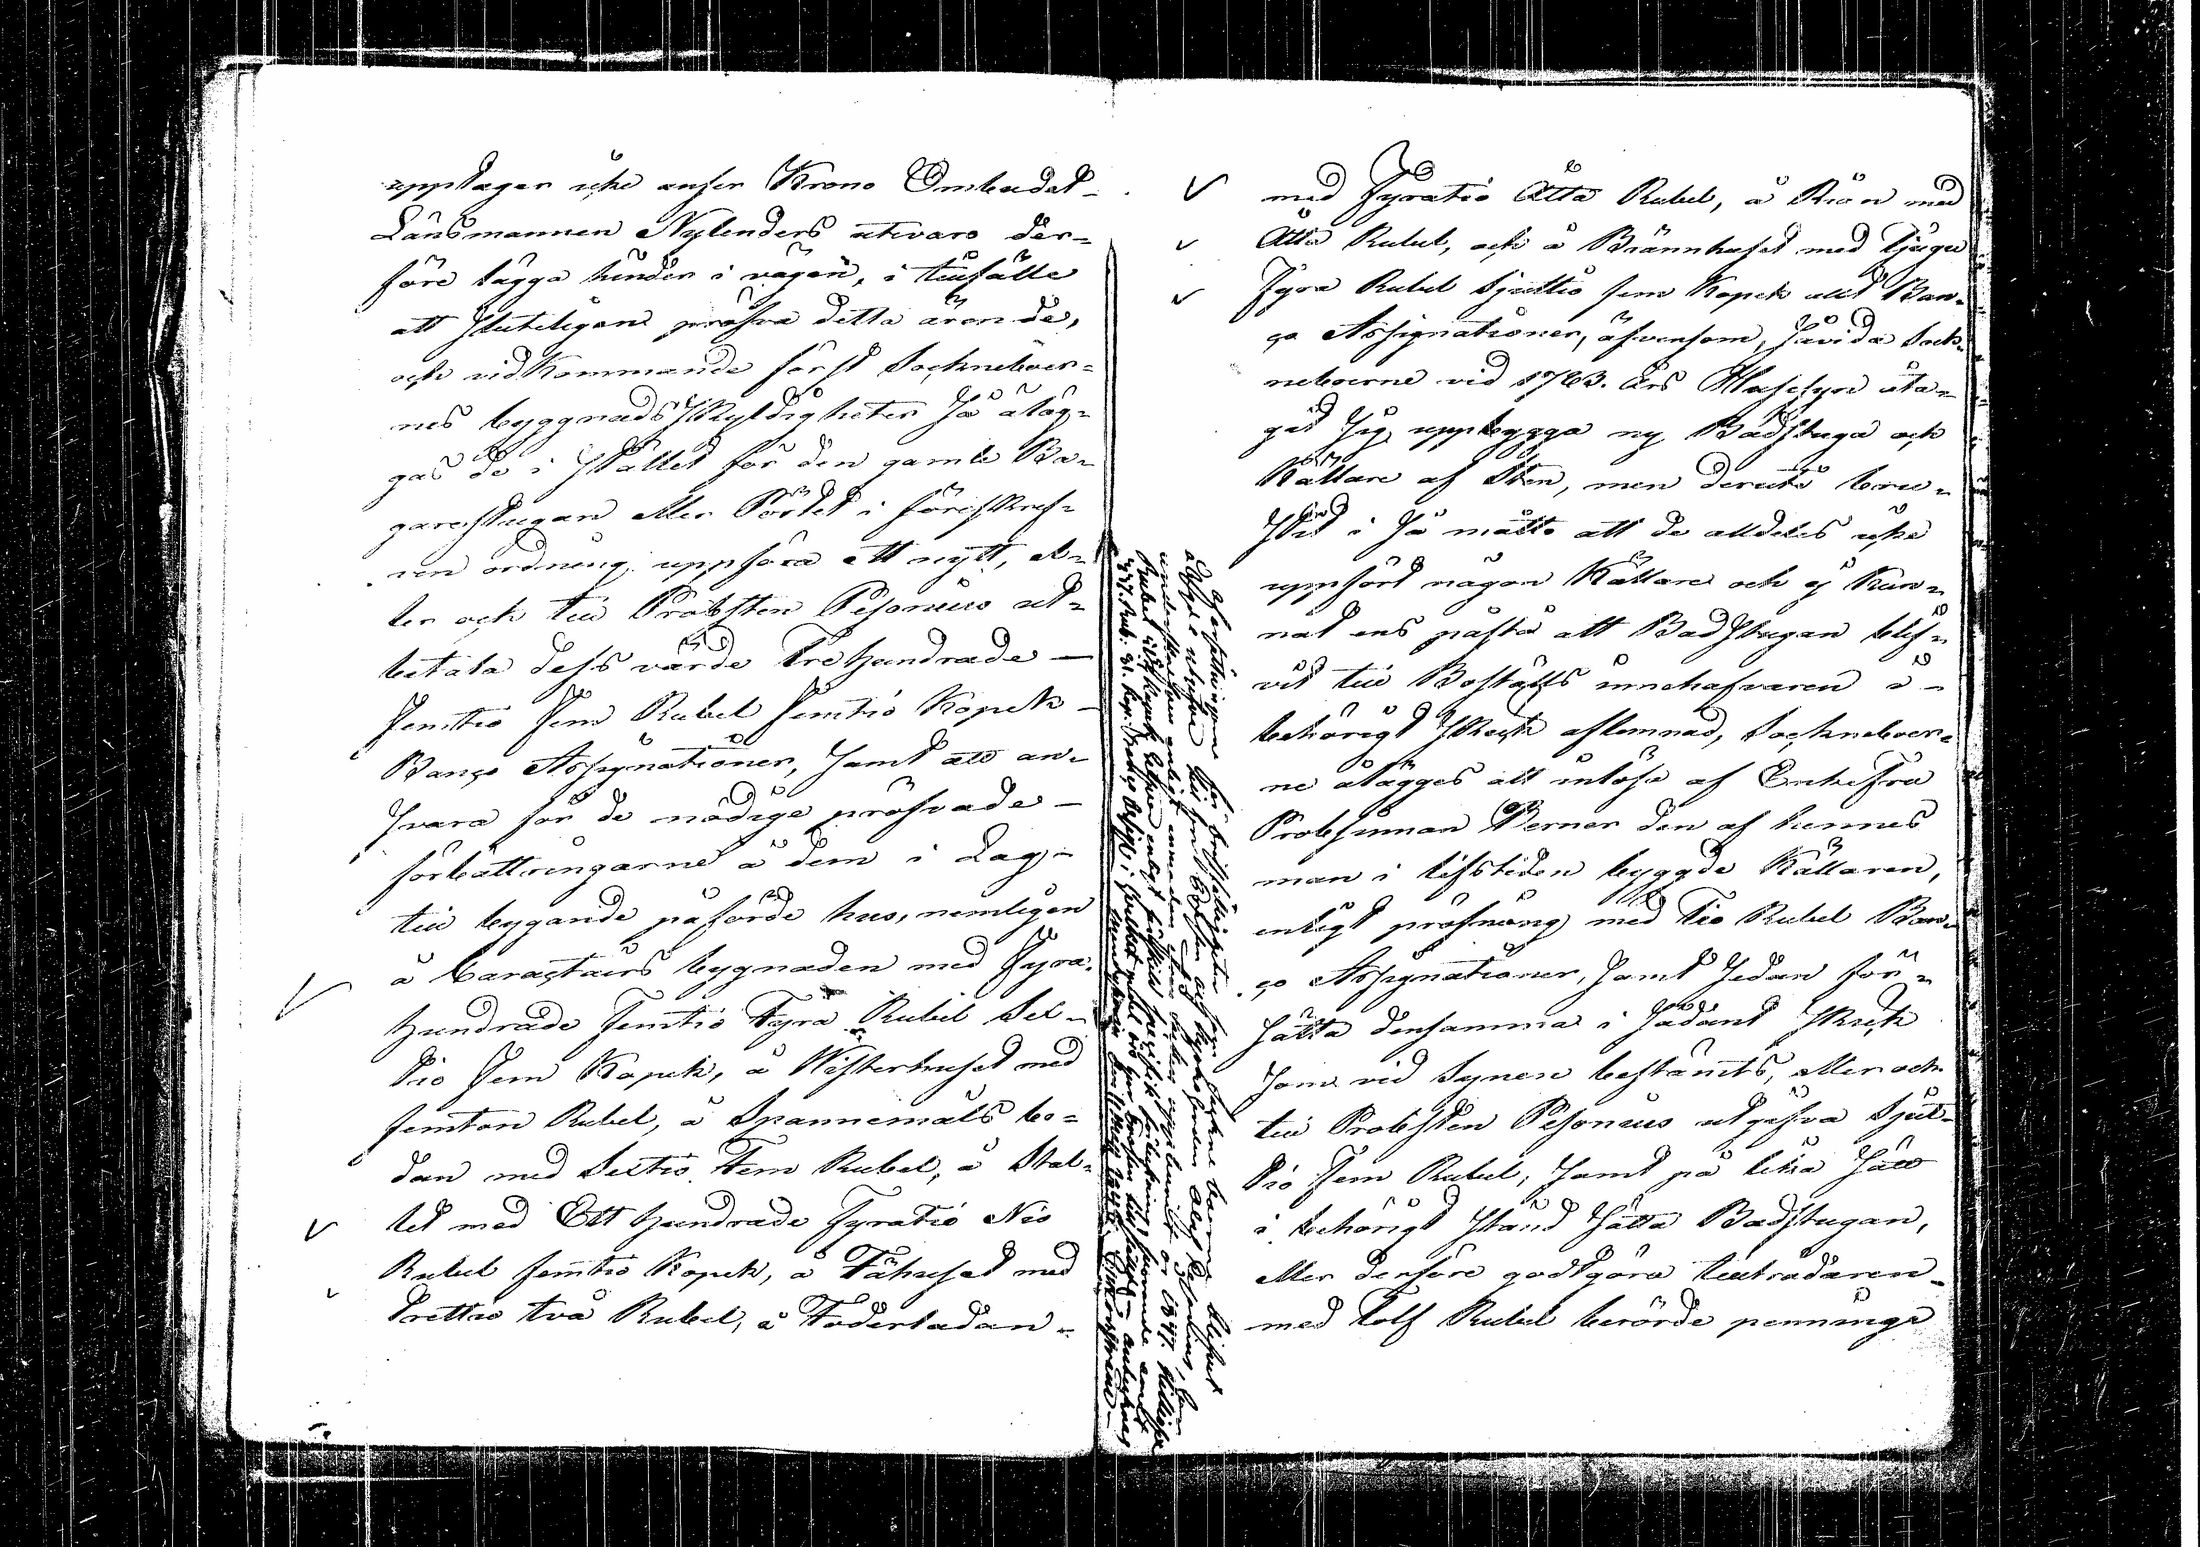 upptager icke anser Krono Ombudet
Länsmannen Nylenders utevaro der-
före lägga hinder i vägen, i tillfälle
att Slutligen pröfva detta ärende,
och vidkommande först Sockneboer-
nes byggnads Skyldigheter Så åläg-
gas de i Stället för den gamle Ba-
garestugan eller Pörtet i föreskref-
ven ordning uppföra ett nytt, el-
ler och till Probsten Pesonius ut-
betala dess värde Trehundrade
Femtio Fem Rubel Femtio Kopek
Banco Assignationer, Samt att an-
Svara för de nödige pröfvade
förbättringarne å dem i Lag-
till bygande påförde hus, nemligen
å Caractairs bygnaden med Fyra-
hundrade Femtio Fyra Rubel Sex-
tio Fem Kopek, å Wisterhuset med
femton Rubel, å Spannemåls bo-
dan med Sextio Fem Rubel, å Stal-
let med Ett hundrade Fyratio Nio
Rubel femtio Kopek, å Fähuset med
Trettio två Rubel, å Foderladan
med Fyratio Åtta Rubel, å Rian med
Åtta Rubel, och å Brännhuset med Tjugu
Fyra Rubel Sjuttio fem Kopek allt Ban-
co Assignationer, äfvensom, Såvida Sock-
neboerne vid 1763. Års Husesyn åta-
git Sig uppbygga ny Badstuga och
Källare af Sten, men deruti brus-
tit i Så måtto att de alldeles icke
uppfört någon Källare och ej kun-
nat ens påstå att Badstugan blif-
vit till Boställs innehafvaren i
behörigt Skick aflemnad, Sockneboer-
ne åläggas att inlösa af Enkefru
Probstinnan Perner den af hennes
man i lifstiden byggde Källaren,
enligt pröfning med Tio Rubel Ban-
co Assignationer, Samt Sedan för-
Sätta densamma i Sådant Skick
Som vid Synen bestämts, eller och
till Probsten Pesonius utgifva Sjut-
tio Fem Rubel, Samt på lika Sätt
i behörigt Stånd Sätta Badstugan,
eller derföre godtgöra tillträdaren
med Tolf Rubel berörde penninge